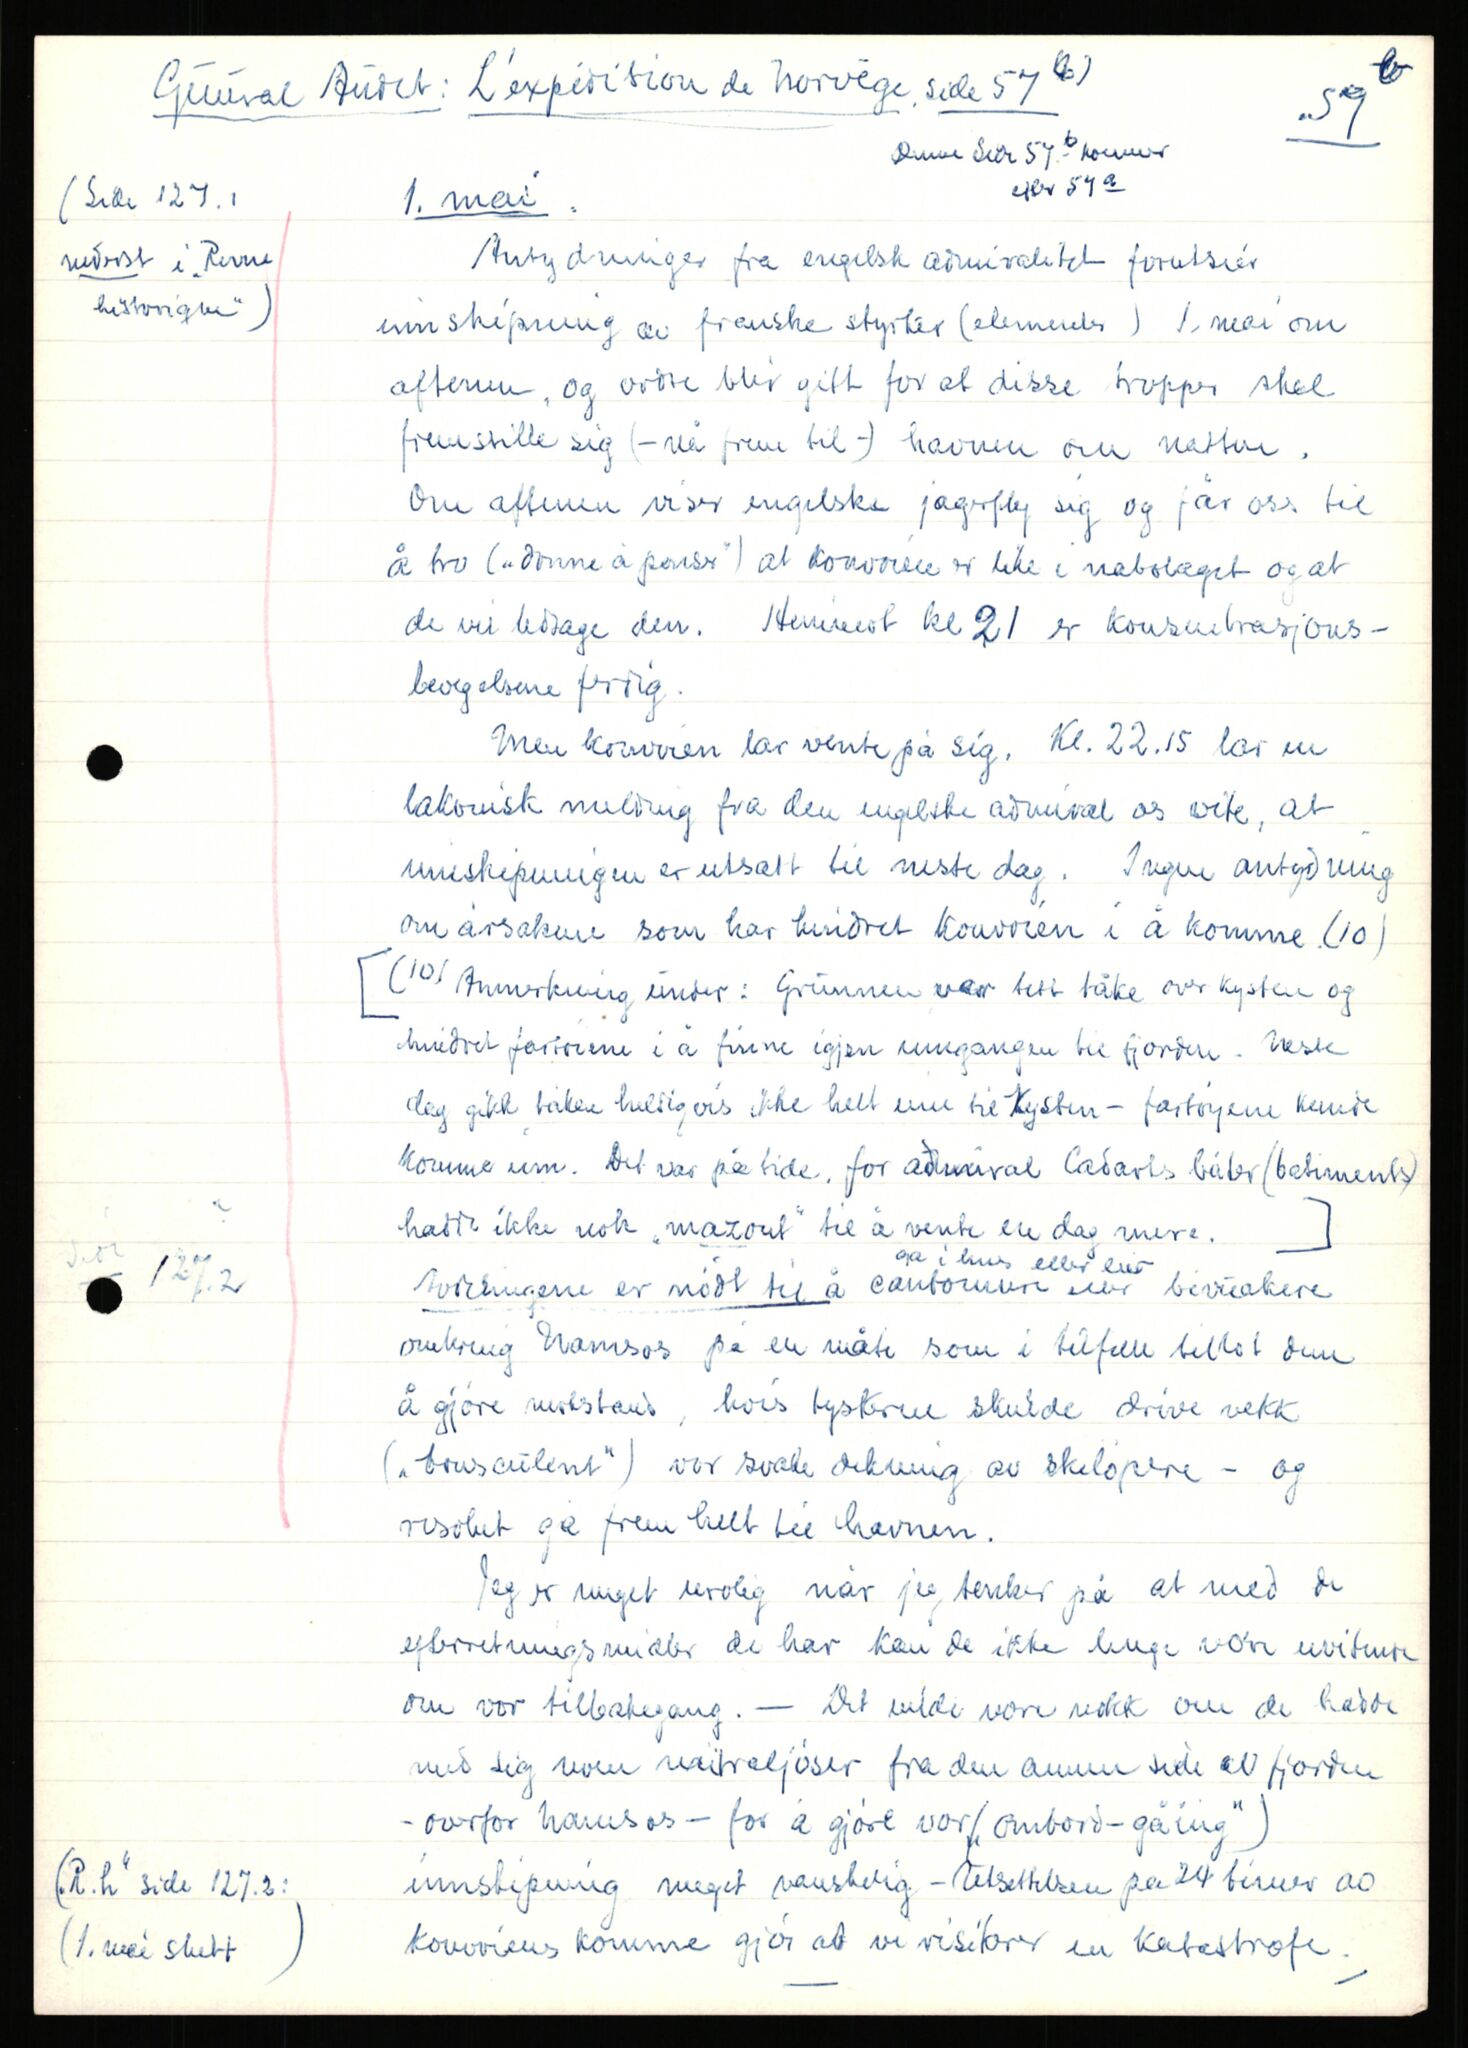 Général Audet: L'expédition de Norvège, side 57 b)
„59 b
Denne side 57 b kommer
efter 57 a
(Side 127.1
nederst i „Revue
historique")
1. mai.
Antydninger fra engelsk admiralitet forutsier
innskipning av franske styrker (elementer) 1. mai om
aftenen, og ordre blir gitt for at disse tropper skal
fremstille sig (- nå frem til -) havnen om natten.
Om aftenen viser engelske jagerfly sig og får oss til
å tro („donne à penser") at konvoien er like i nabolaget og at
de vil ledsage den. Henimot kl 21 er konsentrasjons-
bevegelsene ferdig.
Men konvoien lar vente på sig. Kl. 22.15 lar en
lakonisk melding fra den engelske admiral os vite, at
innskipningen er utsatt til neste dag. Ingen antydning
om årsakene som har hindret konvoien i å komme. (10)
[(10) Anmerkning under: Grunnen var tett tåke over kysten og
hindret fartøiene i å finne igjen inngangen til fjorden. Neste
dag gikk tåken heldigvis ikke helt inn til kysten - fartøyene kunde
komme inn. Det var på tide, for admiral Cadarts båter (batiments)
hadde ikke nok „mazout" til å vente en dag mere. ]
Side 127.2
gå i hus eller leir
Avdelingene er nødt til å cantonnere eller bivuakere
omkring Namsos på en måte som i tilfelle tillot dem
å gjøre motstand, hvis tyskerne skulde drive vekk
(„bousculent") vor svake dekning av skiløpere - og
resolut gå frem helt til havnen.
Jeg er meget urolig når jeg tenker på at med de
efterretningsmidler de har kan de ikke lenge være uvitende
om vor tilbakegang. — Det vilde være nokk om de hadde
med sig noen mitraljøser fra den annen side av fjorden
- overfor Namsos - for å gjøre vor („ombord-gåing")
innskipning meget vanskelig - Utsettelsen på 24 timer av
(„R.h" side 127.2:
konvoiens komme gjør at vi risikerer en katastrofe.
(1. mai slutt)